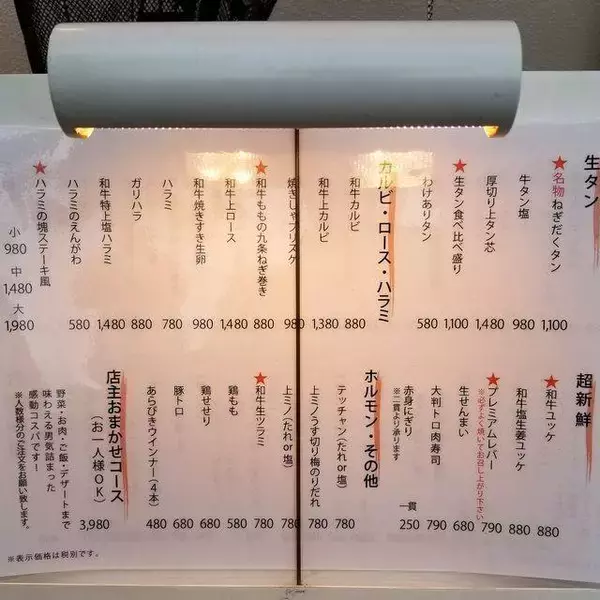 生タン
★名物ねぎだくタン 1,100
牛タン塩 980
厚切り上タン芯 1,480
★生タン食べ比べ盛り 1,100
わけありタン 580
カルビ・ロース・ハラミ
和牛カルビ 880
和牛上カルビ 1,380
焼きしゃぶリスケ 980
★和牛ももの九条ねぎ巻き 880
和牛上ロース 1,480
和牛焼きすき生卵 980
ハラミ 780
ガリハラ 880
和牛特上塩ハラミ 1,480
ハラミのえんがわ 580
★ハラミの塊ステーキ風
小 980
中 1,480
大 1,980
超新鮮
★和牛ユッケ 880
和牛塩生姜ユッケ 880
★プレミアムレバー 790
※必ずよく焼いてお召し上がり下さい
生せんまい 680
大判トロ肉寿司 790
赤身にぎり 一貫 250
※二貫より承ります
ホルモン・その他
テッチャン(たれor塩) 780
上ミノうす切り梅のりだれ 780
上ミノ(たれor塩) 780
★和牛生ツラミ 780
鶏もも 580
鶏せせり 680
豚トロ 680
あらびきウインナー(4本) 480
店主おまかせコース
(お一人様OK) 3,980
野菜・お肉・ご飯・デザートまで
味わえる男気詰まった
感動コスパです!
※人数様分のご注文をお願い致します。
※表示価格は税別です。